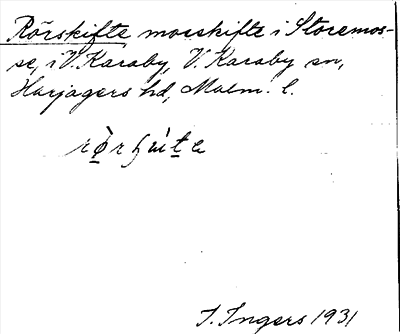 Rörskifte morskifte i Storemos-
se, i V. Karaby, V. Karaby sn,
Harjagers hd, Malm. l.
I. Ingers 1931